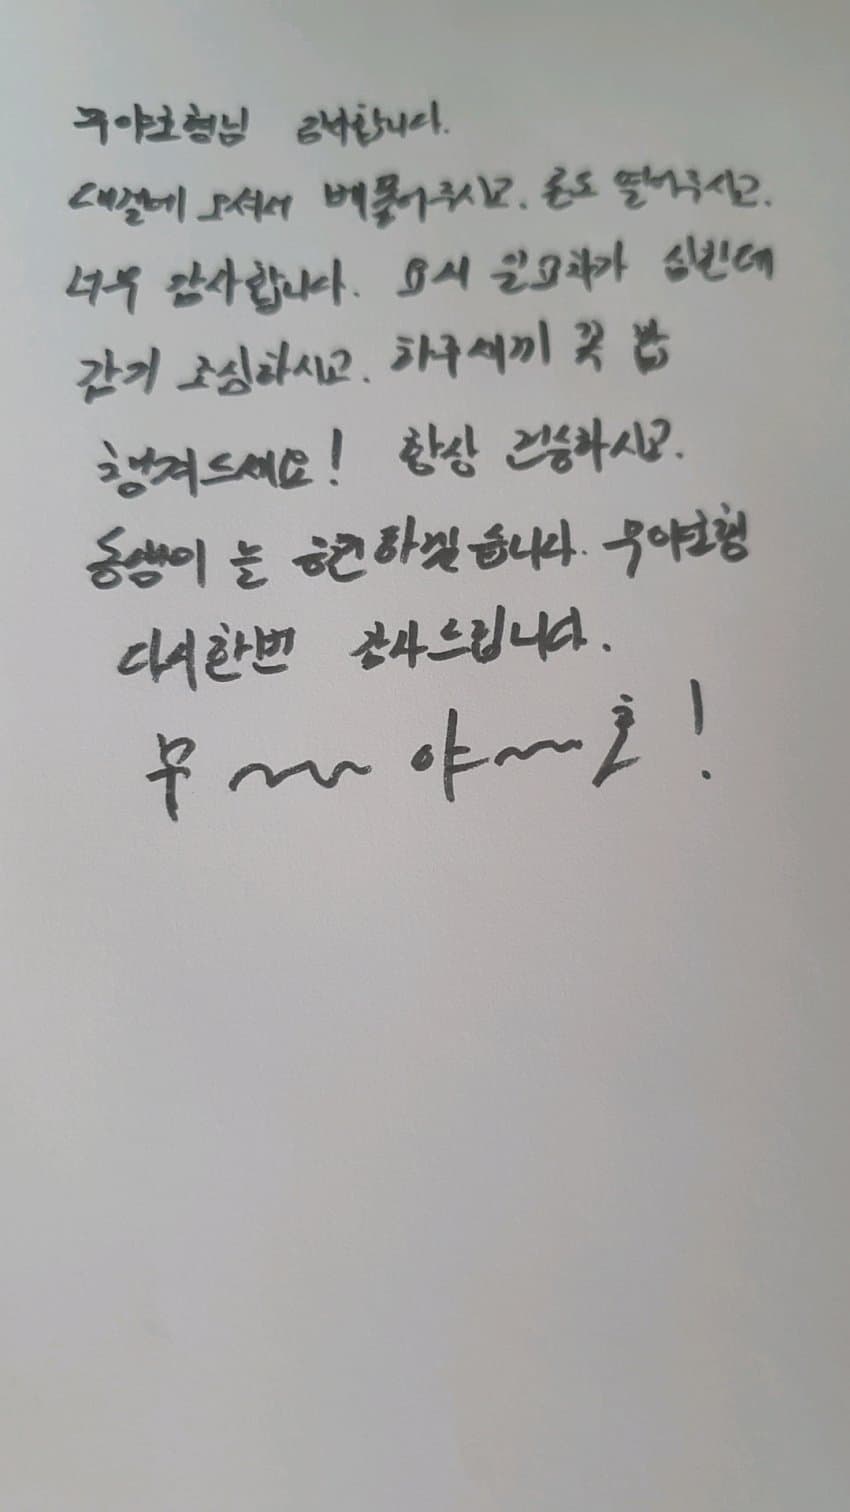 무야호형님 감사합니다.
오셔서 빼꽃어주시고. 돈도 떨어주시고.
너무 감사합니다. 요시 일교차가 심빈데
감기 조심하시고. 하루세끼 꼭 밥
챙겨드세요! 항상 건승하시고.
동생이 늘 하겠습니다. 무야호형
다시한번 감사드립니다.
무~~~야~~호!